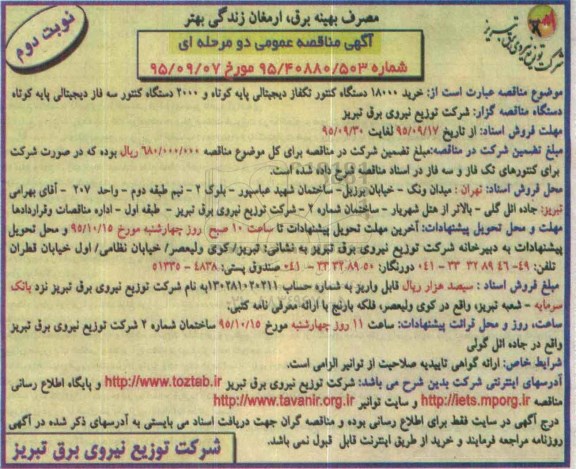 مصرف بهینه برق، ارمغان زندگی بهتر
نوبت دوم
آگهی مناقصه عمومی دو مرحله ای
شماره ۹۵/۴۰۸۸۰/۵۰۳ مورخ ۹۵/۰۹/۰۷
شرکت توزیع نیروی برق تبریز
موضوع مناقصه عبارت است از: خرید ۱۸۰۰۰ دستگاه کنتور تکفاز دیجیتالی پایه کوتاه و ۲۰۰۰ دستگاه کنتور سه فاز دیجیتالی پایه کوتاه
دستگاه مناقصه گزار: شرکت توزیع نیروی برق تبریز
مهلت فروش اسناد: از تاریخ ۹۵/۰۹/۱۷ لغایت ۹۵/۰۹/۳۰
مبلغ تضمین شرکت در مناقصه:مبلغ تضمین شرکت در مناقصه برای کل موضوع مناقصه ۶۸۰/۰۰۰/۰۰۰ ریال بوده که در صورت شرکت
برای کنتورهای تک فاز و سه فاز در اسناد مناقصه شرح داده شده است.
محل فروش اسناد: تهران : میدان ونک - خیابان برزیل- ساختمان شهید عباسپور - بلوک ۲ - نیم طبقه دوم - واحد ۲۰۷ - آقای بهرامی
تبریز: جاده ائل گلی - بالاتر از هتل شهریار - ساختمان شماره ۲ - شرکت توزیع نیروی برق تبریز - طبقه اول - اداره مناقصات وقراردادها
مهلت و محل تحویل پیشنهادات: آخرین مهلت تحویل پیشنهادات تا ساعت ۱۰ صبح روز چهارشنبه مورخ ۹۵/۱۰/۱۵ و محل تحویل
پیشنهادات به دبیرخانه شرکت توزیع نیروی برق تبریز به نشانی: تبریز/کوی ولیعصر/ خیابان نظامی/ اول خیابان قطران
تلفن: ۴۹- ۴۶ ۸۹ ۳۲ ۳۳ - ۰۴۱ دورنگار: ۵۰ ۸۹ ۳۲ ۳۳ - ۰۴۱ صندوق پستی: ۴۸۳۸ - ۵۱۳۳۵
مبلغ فروش اسناد : سیصد هزار ریال قابل واریز به شماره حساب ۱۳۰۲۸۱۰۲۰۳۱۱به نام شرکت توزیع نیروی برق تبریز نزد بانک
سرمایه - شعبه تبریز، واقع در کوی ولیعصر، فلکه بارنج با ارائه معرفی نامه کتبی.
ساعت، روز و محل قرائت پیشنهادات: ساعت ۱۱ روز چهارشنبه مورخ ۹۵/۱۰/۱۵ ساختمان شماره ۲ شرکت توزیع نیروی برق تبریز
واقع در جاده ائل گولی
شرایط خاص: ارائه گواهی تاییدیه صلاحیت از توانیر الزامی است.
آدرسهای اینترنتی شرکت بدین شرح می باشد: شرکت توزیع نیروی برق تبریز http://www.toztab.ir و پایگاه اطلاع رسانی
مناقصه http://iets.mporg.ir و سایت توانیر http://www.tavanir.org.ir
درج آگهی در سایت فقط برای اطلاع رسانی بوده و مناقصه گران جهت دریافت اسناد می بایستی به آدرسهای ذکر شده در آگهی
روزنامه مراجعه فرمایند و خرید از طریق اینترنت قابل قبول نمی باشد.
شرکت توزیع نیروی برق تبریز